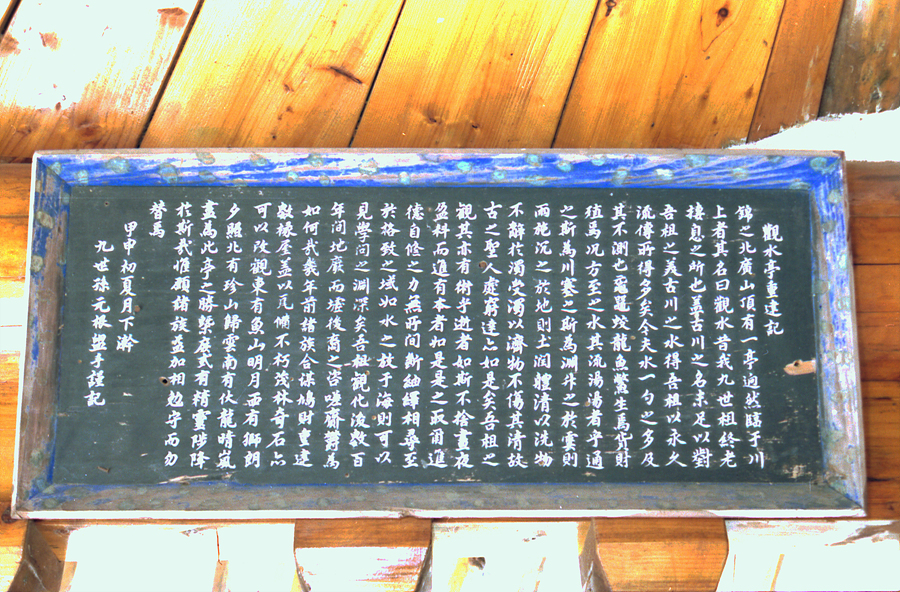 觀水亭重建記
錦之北廣山頂有一亭逈然臨于川
上者其名曰觀水昔我九世祖終老
棲息之所也盖古川之名未足以對
吾祖之義古川之水得吾祖以永久
流傳所得多矣今夫水一勺之多及
其不測也黿鼉蛟龍魚鱉生焉貨財
殖焉况方至之水其流湯湯者乎通
之斯爲川塞之斯爲淵升之於雲則
雨施沉之於地則土潤體清以洗物
不辭於濁受濁以濟物不傷其清故
古之聖人處窮達亡如是矣吾祖之
觀其亦有術乎逝者如斯不捨晝夜
盈科而進有本者如是是之取爾進
德自修之力無所間斷紬繹相尋至
於格致之域如水之放于海則可以
見學問之淵深矣吾祖觀化後數百
年間地廢而墟後裔之咨嗟齎鬱焉
如何哉幾年前諸族合謀鳩財重建
數椽屋盖以瓦備不朽茂林奇石亦
可以改觀東有魚山明月西有獅朗
夕照北有珍山歸雲南有伏龍晴嵐
盡爲此亭之勝槩庶式有精靈陟降
於斯我惟願諸族益加相勉守而勿
替焉
甲申初夏月下澣
九世孫元根盥手謹記